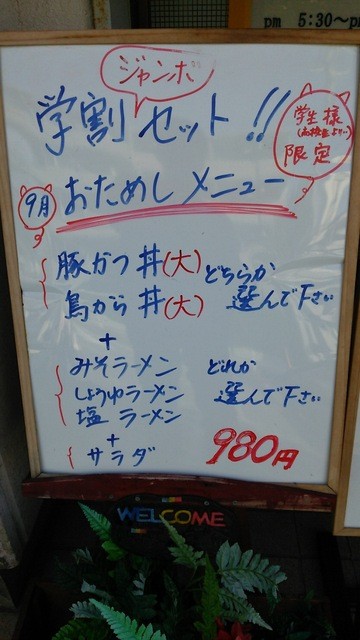 pm 5:30～p
ジャンボ
学割セット!!
学生様
(高校生より…)
限定
9月
おためしメニュー
豚かつ丼(大)
鳥から丼(大)
どちらか
選んで下さい
+
みそラーメン
しょうゆラーメン
塩ラーメン
どれか
選んで下さい
+
サラダ
980円
WELCOME